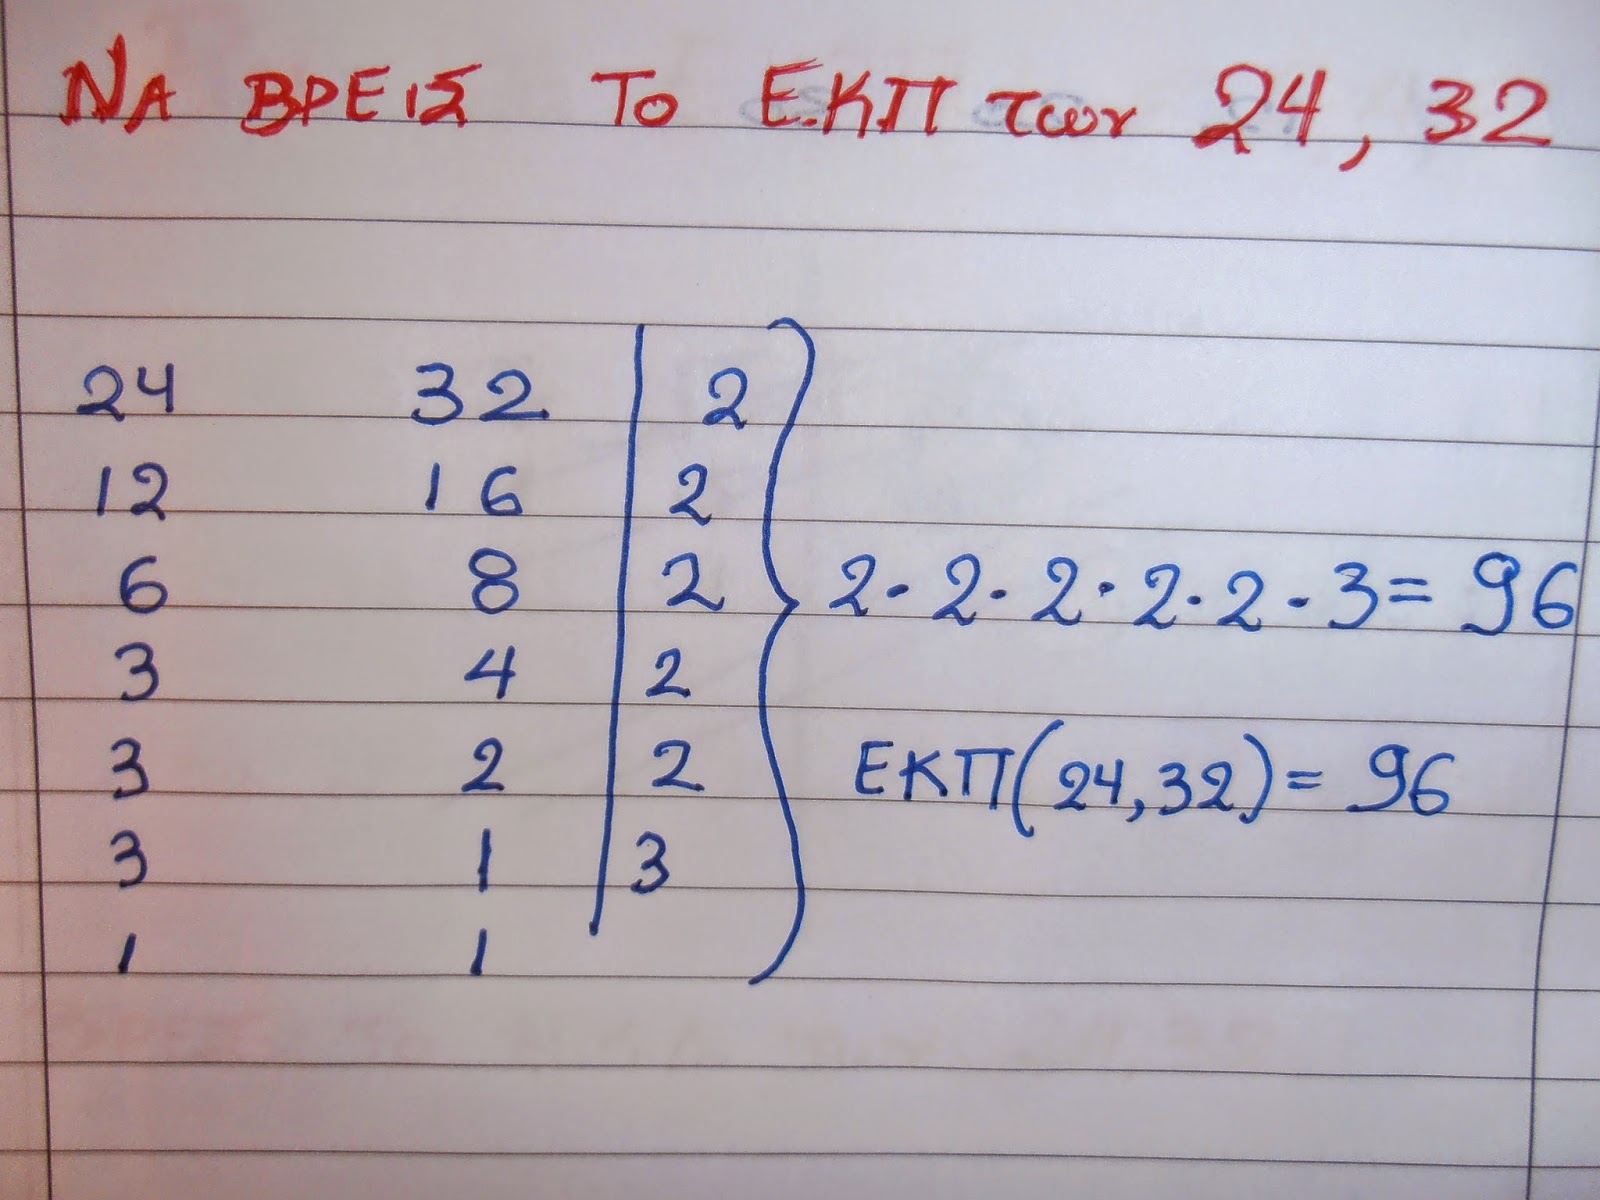 ΝΑ ΒΡΕΙΣ ΤΟ Ε.ΚΠ των 24, 32
24 32 2
12 16 2
6 8 2
2·2·2·2·2·3= 96
3 4 2
3 2 2
ΕΚΠ(24,32)= 96
3 1 3
1 1